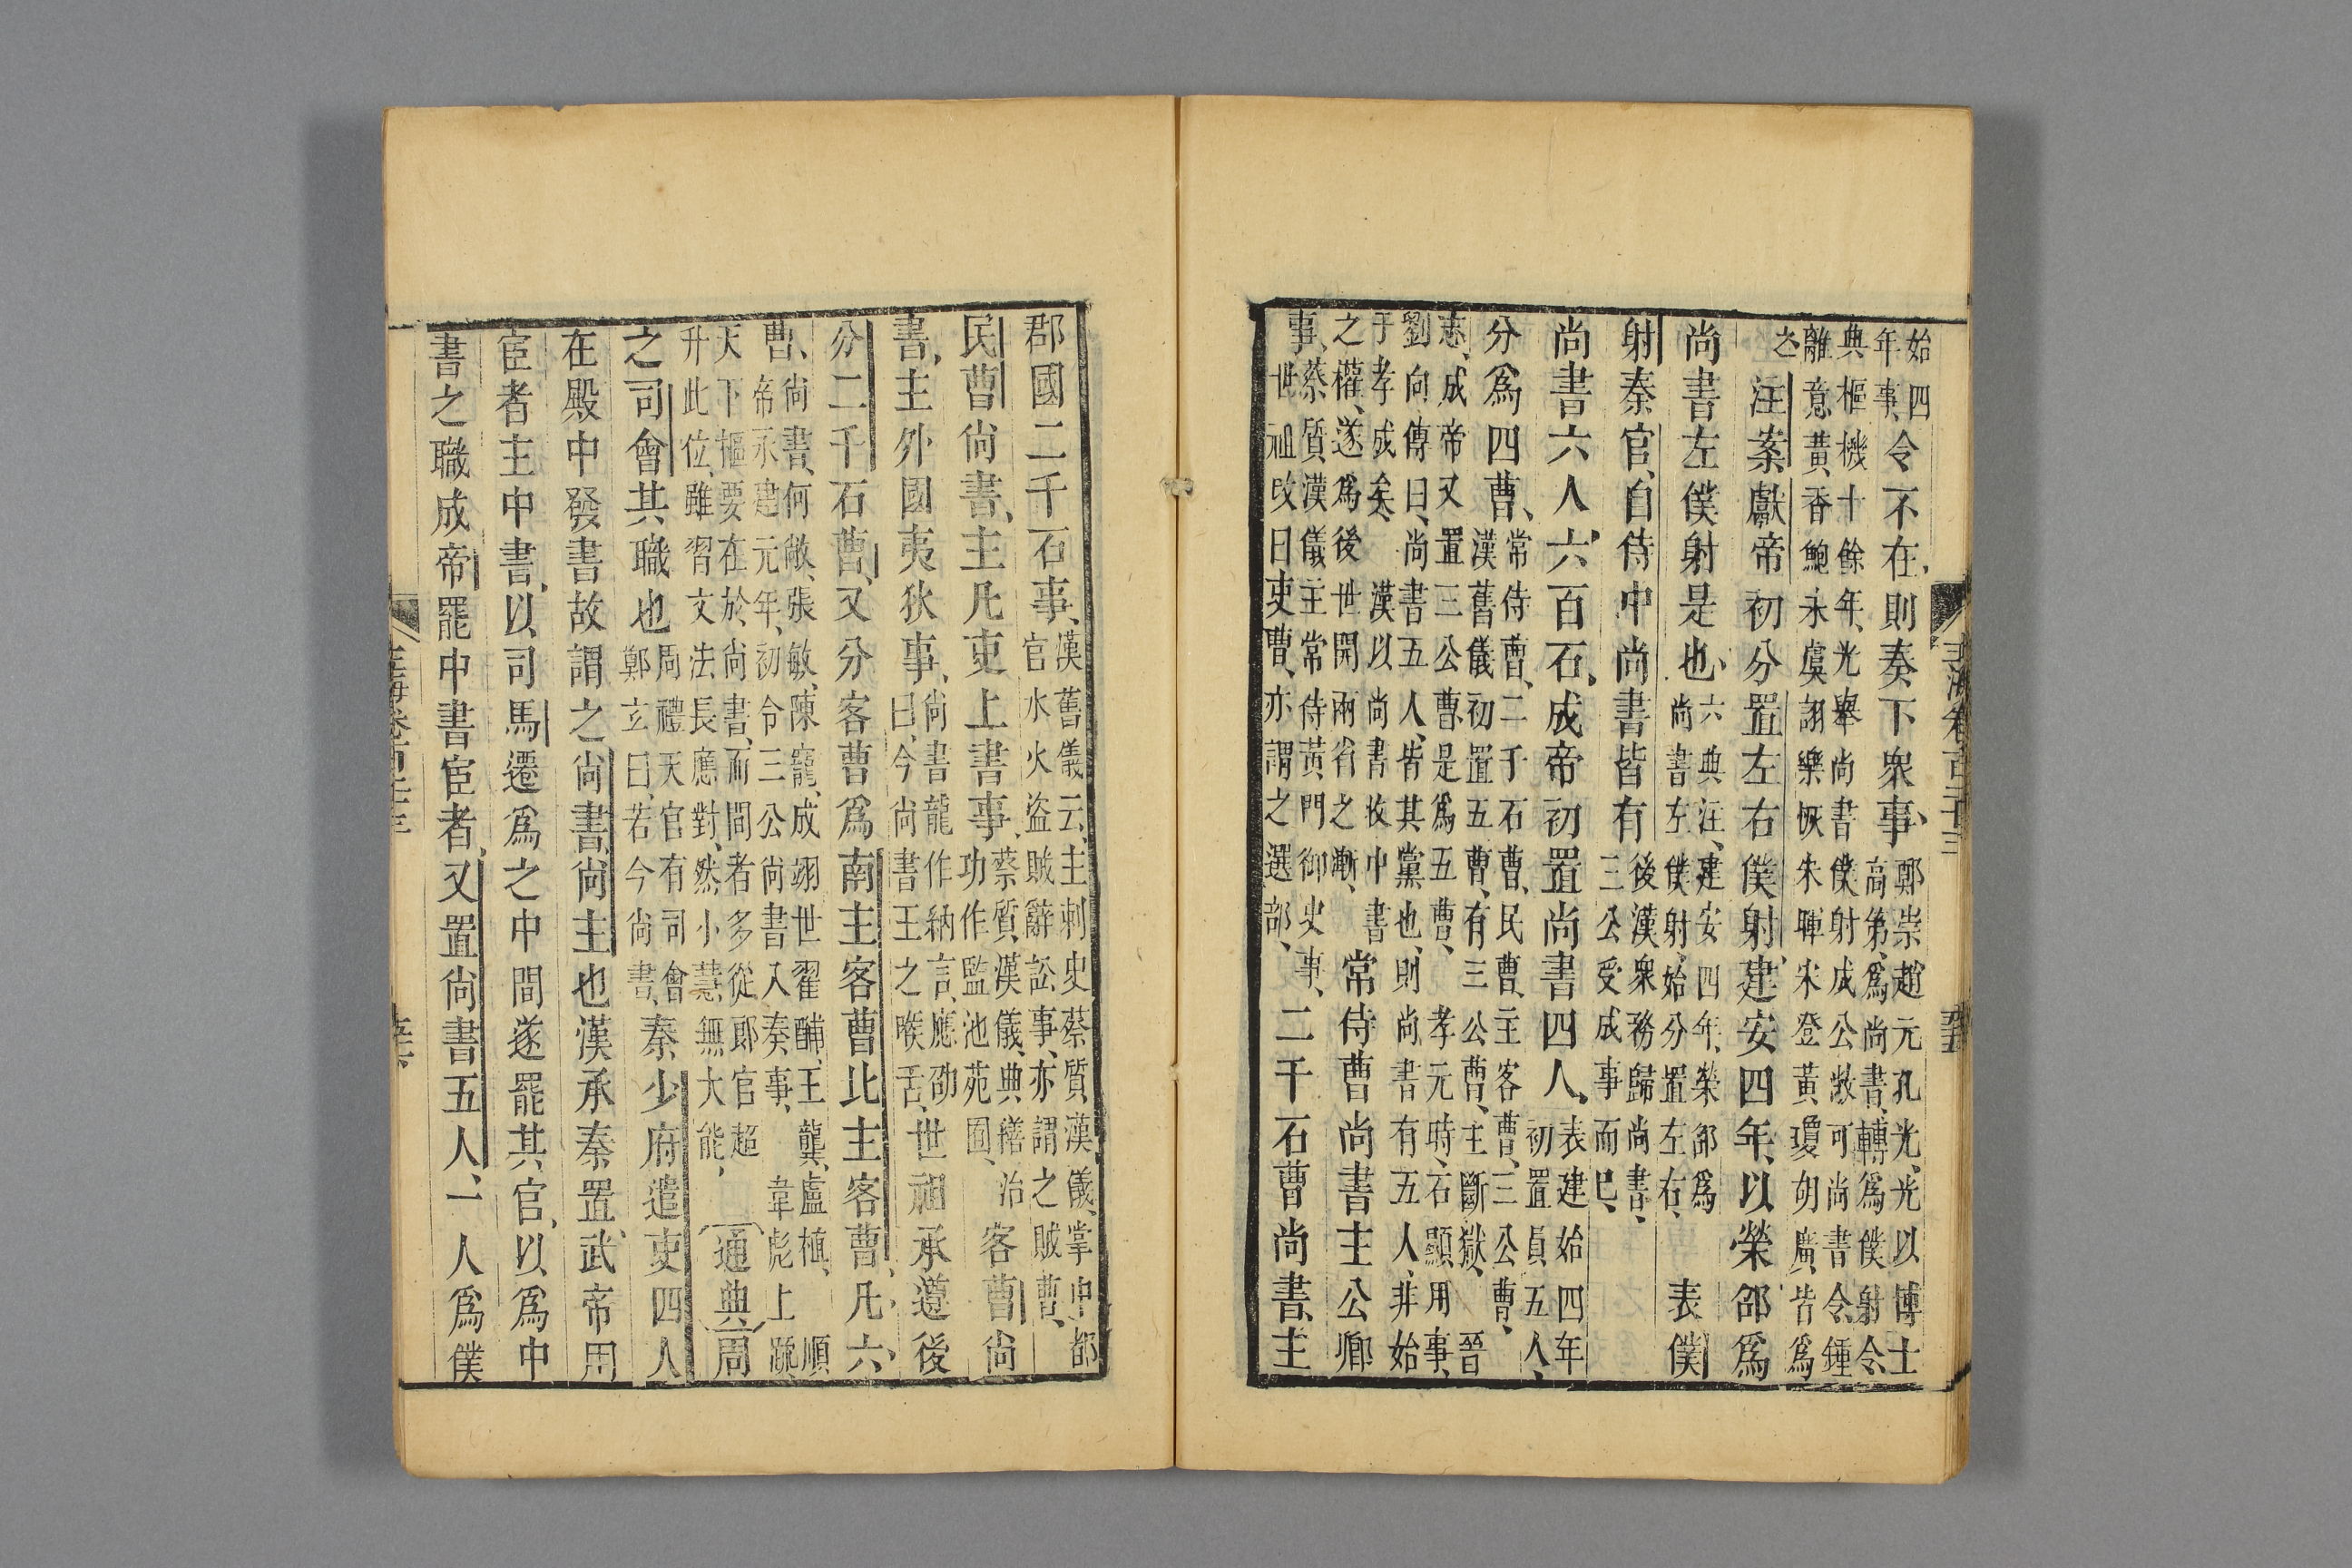 始四年事、令不在、則奏下衆事、鄭崇、趙元、孔光、光以博士高第、爲尚書、轉爲僕射令、
典樞機十餘年、光舉尚書僕射成公敞可尚書令、鍾離意、黃香、鮑永、虞詡、樂恢、朱暉、宋登、黃瓊、胡廣、皆爲
之 注案獻帝初分置左右僕射、建安四年、以榮郃爲
尚書左僕射是也、六典注、建安四年、榮郃爲尚書左僕射、始分置左右、 表僕
射秦官、自侍中尚書皆有 後漢衆務歸尚書、三公受成事而已、
尚書六人六百石、成帝初置尚書四人、表建始四年、初置員五人、
分爲四曹、常侍曹、二千石曹、民曹、主客曹、三公曹、漢舊儀初置五曹、有三公曹、主斷獄、晉
志、成帝又置三公曹、是爲五曹、孝元時、石顯用事、劉向傳曰、尚書五人、皆其黨也、則尚書有五人、非始
于孝成矣、漢以尚書收中書之權、遂爲後世開兩省之漸、 常侍曹尚書主公卿
事、蔡質漢儀主常侍黃門御史事、世祖改曰吏曹、亦謂之選部、二千石曹尚書、主
玉海卷百二十三
郡國二千石事、漢舊儀云、主刺史蔡質漢儀、掌中都官水火盜賊辭訟事、亦謂之賊曹、
民曹尚書、主凡吏上書事、蔡質漢儀、典繕治功作監池苑囿、 客曹尚
書、主外國夷狄事、尚書龍作納言、應劭曰、今尚書王之喉舌、世祖承遵後
分二千石曹、又分客曹爲南主客曹北主客曹、凡六
曹、尚書、何敞、張敏、陳寵、成翊世翟酺、王龔、盧植、順帝永建元年、初令三公尚書入奏事、韋彪上疏
天下樞要在於尚書、而間者多從郎官超升此位、雖習文法長應對、然小慧無大能、 通典周
之司會其職也 周禮天官有司會鄭玄曰、若今尚書、秦少府遣吏四人
在殿中發書故謂之尚書、尚主也漢承秦置、武帝用
宦者主中書、以司馬遷爲之中間遂罷其官、以爲中
書之職成帝罷中書宦者、又置尚書五人、一人爲僕